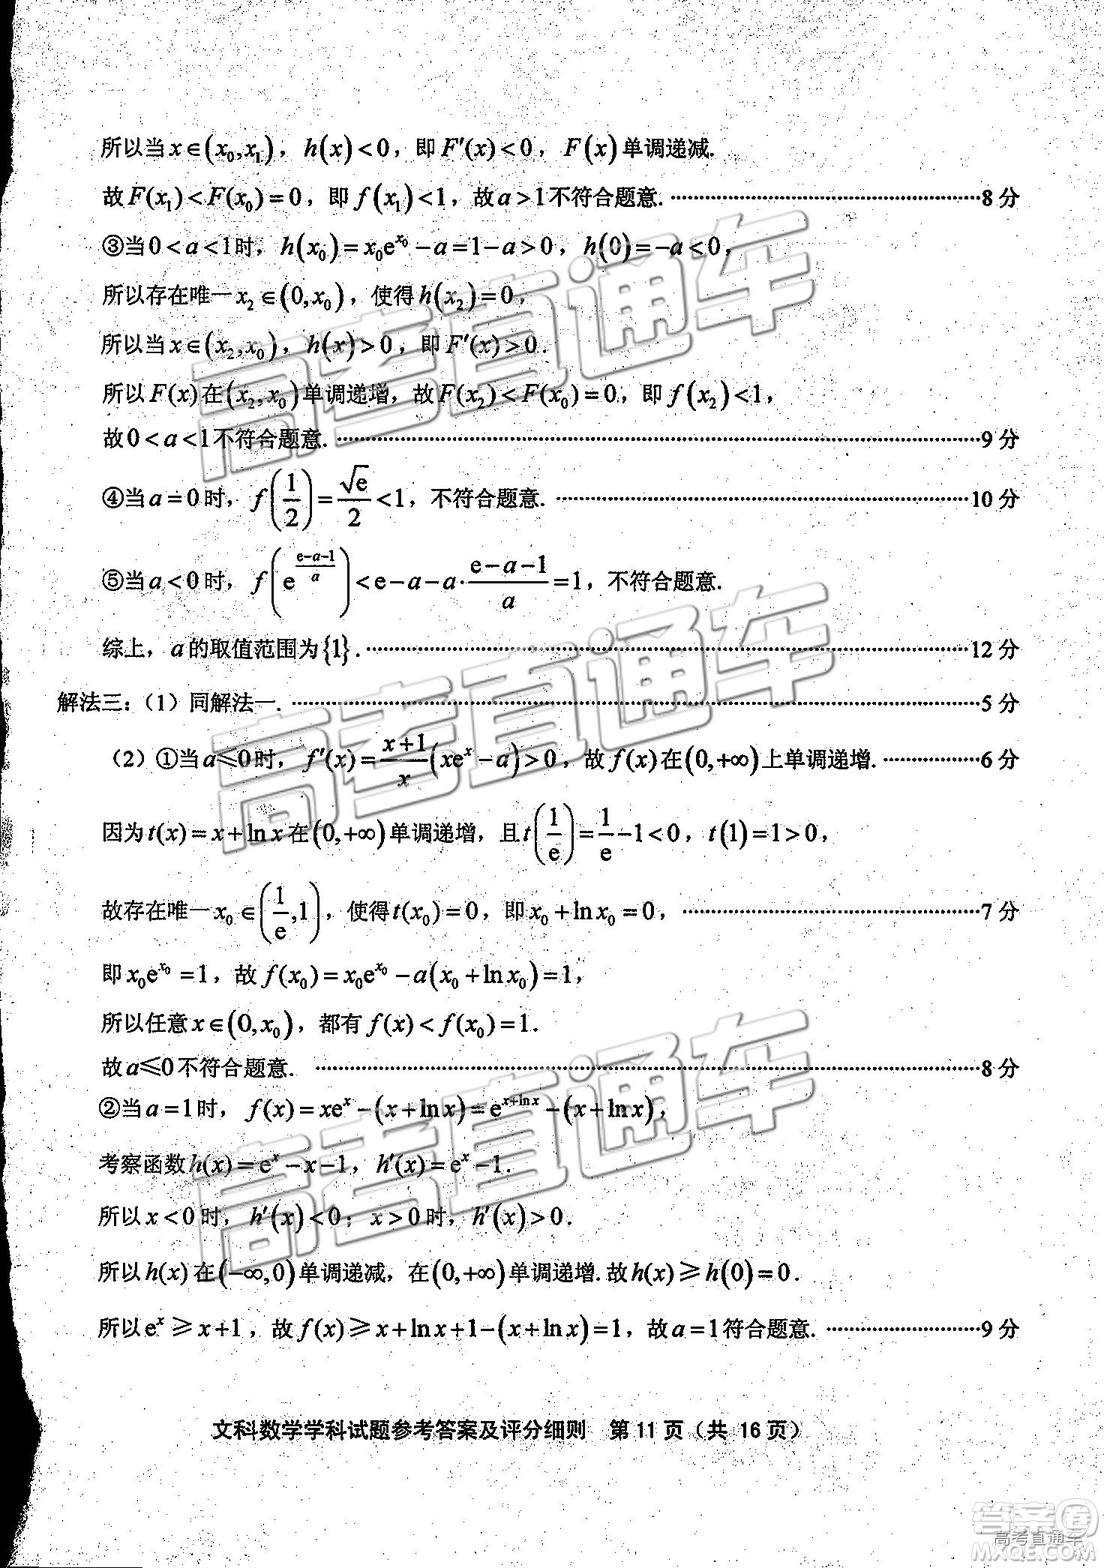 所以当x∈(x₀,x₁)，h(x)<0，即F′(x)<0，F(x)单调递减.
故F(x₁)<F(x₀)=0，即f(x₁)<1，故a>1不符合题意.………………8分
③当0<a<1时，h(x₀)=x₀e^{x₀}-a=1-a>0，h(0)=-a<0，
所以存在唯一x₂∈(0,x₀)，使得h(x₂)=0，
所以当x∈(x₂,x₀)，h(x)>0，即F′(x)>0.
所以F(x)在(x₂,x₀)单调递增，故F(x₂)<F(x₀)=0，即f(x₂)<1，
故0<a<1不符合题意.………………9分
④当a=0时，f(1/2)=√e/2<1，不符合题意.………………10分
⑤当a<0时，f(e^{(e-a-1)/a})<e-a-a·(e-a-1)/a=1，不符合题意.
综上，a的取值范围为{1}.………………12分
解法三：（1）同解法一.………………5分
（2）①当a≤0时，f′(x)=(x+1)/x(xe^x-a)>0，故f(x)在(0,+∞)上单调递增.………………6分
因为t(x)=x+lnx在(0,+∞)单调递增，且t(1/e)=1/e-1<0，t(1)=1>0，
故存在唯一x₀∈(1/e,1)，使得t(x₀)=0，即x₀+lnx₀=0，………………7分
即x₀e^{x₀}=1，故f(x₀)=x₀e^{x₀}-a(x₀+lnx₀)=1，
所以任意x∈(0,x₀)，都有f(x)<f(x₀)=1.
故a≤0不符合题意.………………8分
②当a=1时，f(x)=xe^x-(x+lnx)=e^{x+lnx}-(x+lnx)，
考察函数h(x)=e^x-x-1，h′(x)=e^x-1.
所以x<0时，h′(x)<0；x>0时，h′(x)>0.
所以h(x)在(-∞,0)单调递减，在(0,+∞)单调递增.故h(x)≥h(0)=0.
所以e^x≥x+1，故f(x)≥x+lnx+1-(x+lnx)=1，故a=1符合题意.………………9分
文科数学学科试题参考答案及评分细则 第11页（共 16页）
高考直通车
高考直通车
高考直通车
答案圈
高考直通车
MXQE.COM